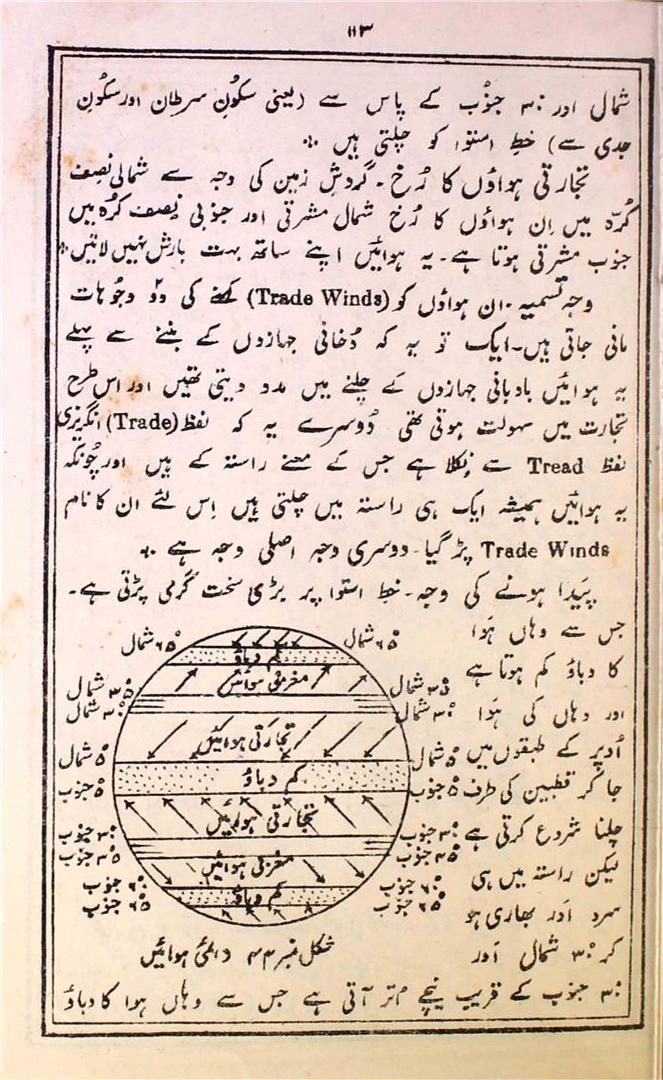 ۱۱۳
شمال اور ۳۰° جنوب کے پاس سے (یعنی سکونِ سرطان اور سکونِ
جدی سے) خطِ استوا کو چلتی ہیں ؞
تجارتی ہواؤں کا رُخ۔ گردشِ زمین کی وجہ سے شمالی نصف
کُرّہ میں اِن ہواؤں کا رُخ شمال مشرقی اور جنوبی نصف کُرہ میں
جنوب مشرقی ہوتا ہے۔ یہ ہوائیں اپنے ساتھ بہت بارش نہیں لاتیں ؞
وجہ تسمیہ ۔ ان ہواؤں کو (Trade Winds) کہنے کی دو وجُوہات
مانی جاتی ہیں۔ ایک تو یہ کہ دُخانی جہازوں کے بننے سے پہلے
یہ ہوائیں بادبانی جہازوں کے چلنے میں مدد دیتی تھیں اور اس طرح
تجارت میں سہولت ہوتی تھی دُوسرے یہ کہ لفظ (Trade) انگریزی
لفظ Tread سے نِکلا ہے جس کے معنے راستہ کے ہیں اور چُونکہ
یہ ہوائیں ہمیشہ ایک ہی راستہ میں چلتی ہیں اِس لئے ان کا نام
Trade Winds پڑ گیا۔ دوسری وجہ اصلی وجہ ہے ؞
پَیدا ہونے کی وجہ۔ خطِ استوا پر بڑی سخت گرمی پڑتی ہے۔
جس سے وہاں ہَوا
کا دباؤ کم ہوتا ہے
اور وہاں کی ہَوا
اُوپر کے طبقوں میں
جا کر قطبین کی طرف
چلنا شروع کرتی ہے
لیکن راستہ میں ہی
سرد اَور بھاری ہو
کر ۳۰° شمال اَور
۳۰° جنوب کے قریب نیچے اُتر آتی ہے جس سے وہاں ہوا کا دباؤ
۶۵° شمال
۶۵° شمال
کم دباؤ
مغربی ہوائیں
۳۵° شمال
۳۵° شمال
۳۰° شمال
۳۰° شمال
تجارتی ہوائیں
۵° شمال
۵° شمال
کم دباؤ
۵° جنوب
۵° جنوب
تجارتی ہوائیں
۳۰° جنوب
۳۰° جنوب
۳۵° جنوب
۳۵° جنوب
مغربی ہوائیں
۶۰° جنوب
۶۰° جنوب
کم دباؤ
۶۵° جنوب
۶۵° جنوب
شکل نمبر ۴۳ دائمی ہوائیں